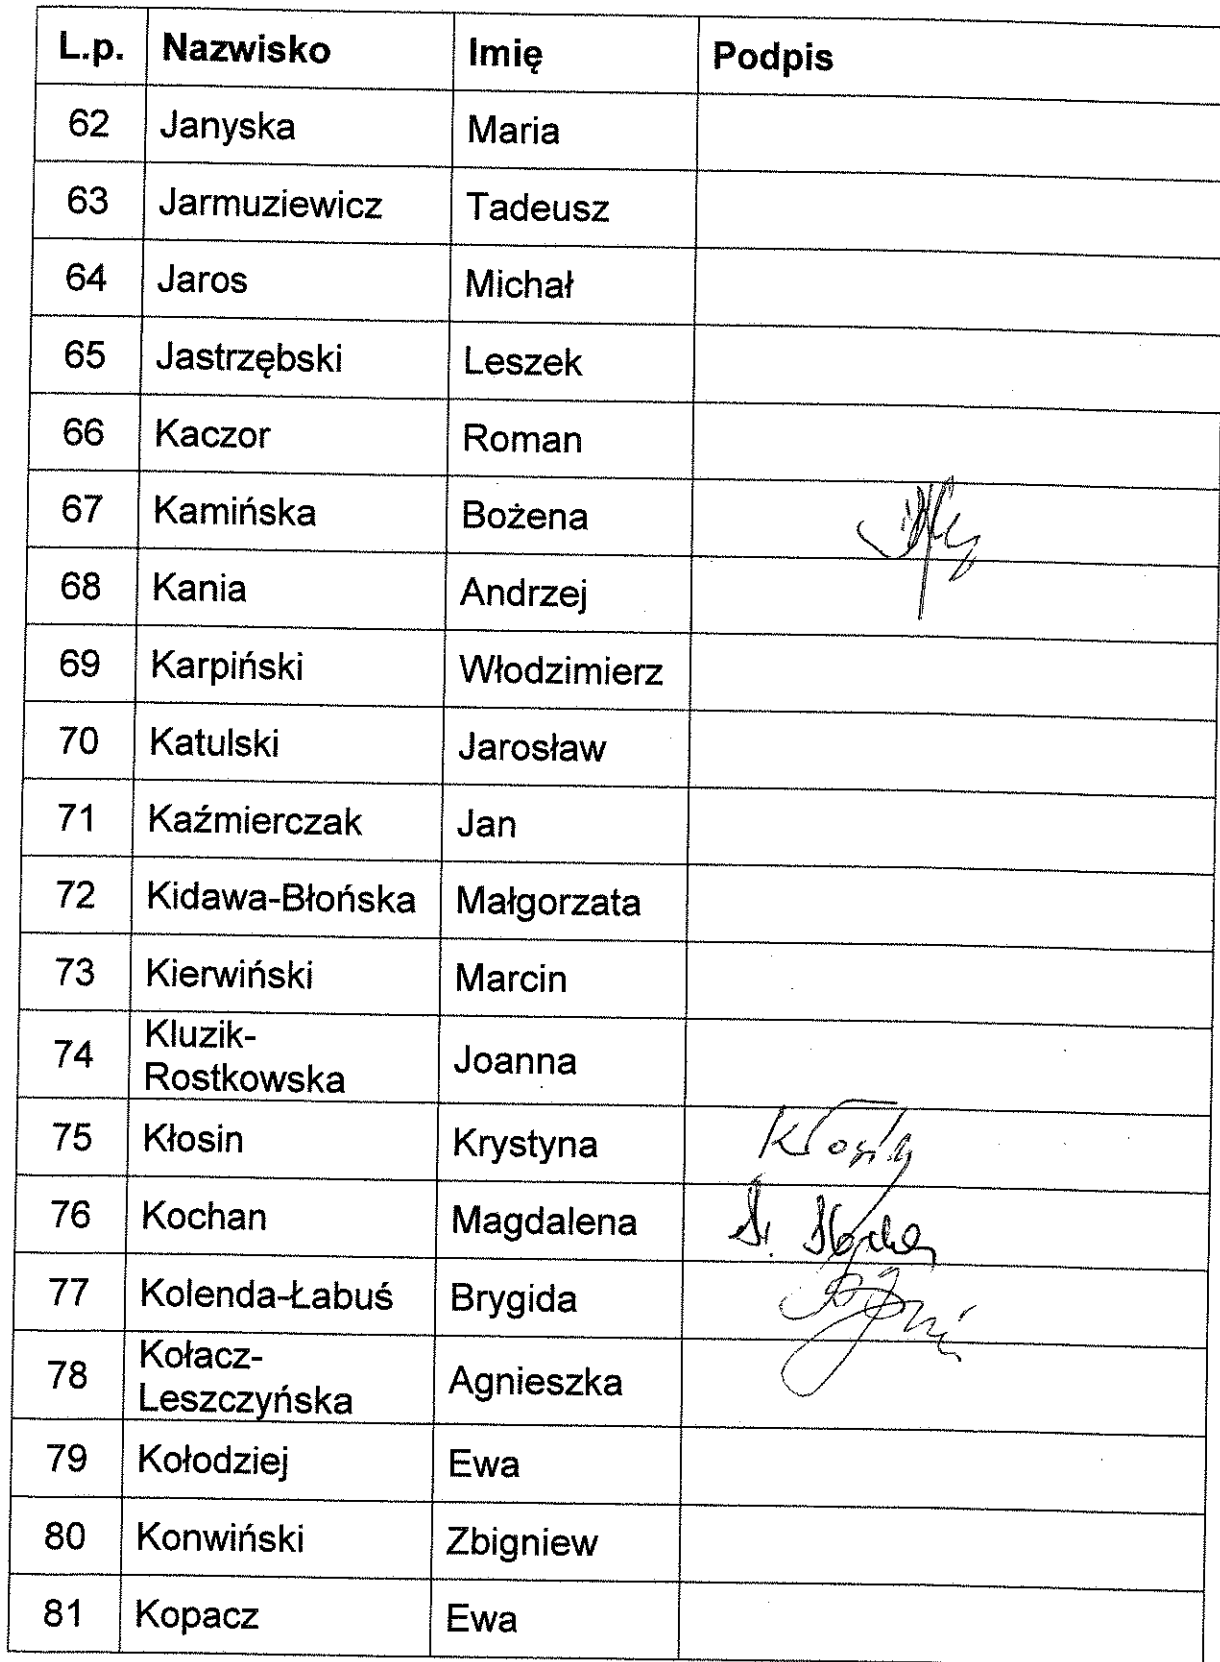 L.p. Nazwisko Imię Podpis
62 Janyska Maria
63 Jarmuziewicz Tadeusz
64 Jaros Michał
65 Jastrzębski Leszek
66 Kaczor Roman
67 Kamińska Bożena
68 Kania Andrzej
69 Karpiński Włodzimierz
70 Katulski Jarosław
71 Kaźmierczak Jan
72 Kidawa-Błońska Małgorzata
73 Kierwiński Marcin
74 Kluzik-
Rostkowska Joanna
75 Kłosin Krystyna Kłosin
76 Kochan Magdalena
77 Kolenda-Łabuś Brygida
78 Kołacz-
Leszczyńska Agnieszka
79 Kołodziej Ewa
80 Konwiński Zbigniew
81 Kopacz Ewa